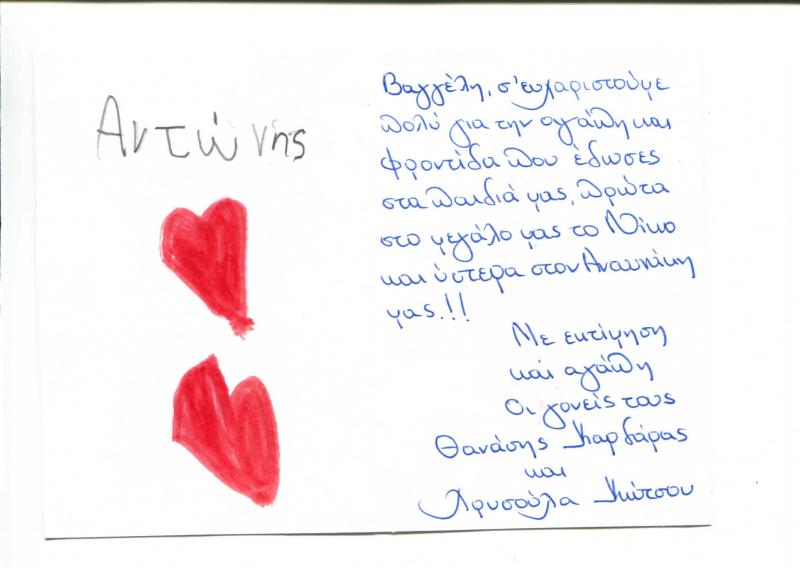 Αντώνης
Βαγγέλη, σ'ευχαριστούμε
πολύ για την αγάπη και
φροντίδα που έδωσες
στα παιδιά μας, πρώτα
στο μεγάλο μας το Νίκο
και ύστερα στον Αντωνάκη
μας.!!
Με εκτίμηση
και αγάπη
Οι γονείς τους
Θανάσης Καρδάρας
και
Χρυσούλα Κώτσου